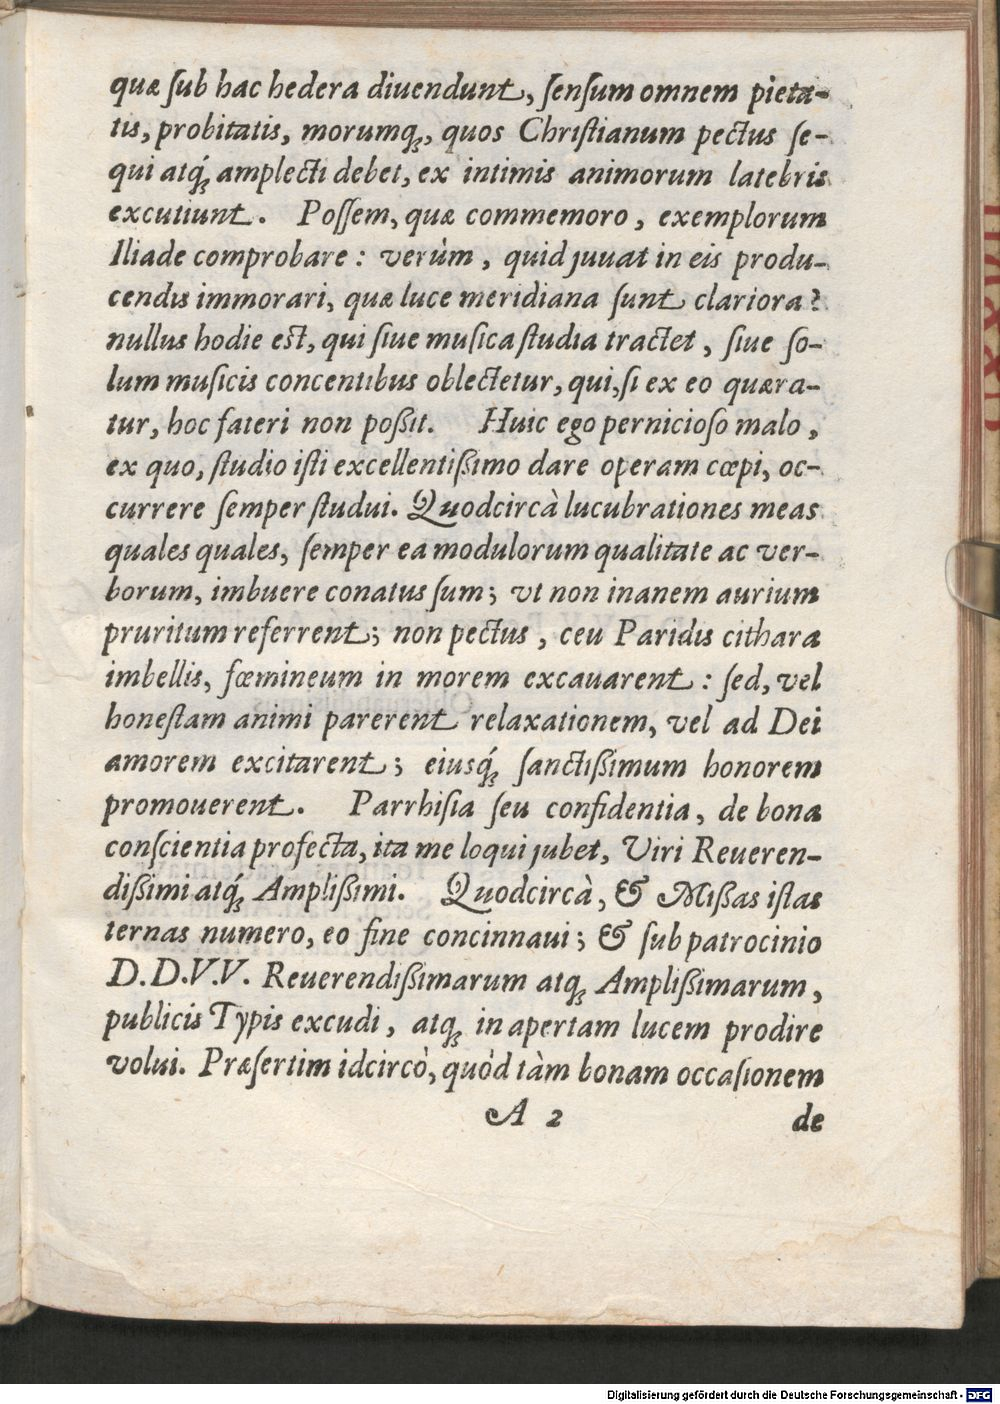 quæ ſub hac hedera diuendunt, ſenſum omnem pieta-
tis, probitatis, morumq́ꝫ, quos Chriſtianum pectus ſe-
qui atq́ꝫ amplecti debet, ex intimis animorum latebris
excutiunt. Poſſem, quæ commemoro, exemplorum
Iliade comprobare: verùm, quid juuat in eis produ-
cendis immorari, quæ luce meridiana ſunt clariora?
nullus hodie eſt, qui ſiue muſica ſtudia tractet, ſiue ſo-
lum muſicis concentibus oblectetur, qui, ſi ex eo quæra-
tur, hoc fateri non poßit. Huic ego pernicioſo malo,
ex quo, ſtudio iſti excellentißimo dare operam cœpi, oc-
currere ſemper ſtudui. Quodcircà lucubrationes meas
quales quales, ſemper ea modulorum qualitate ac ver-
borum, imbuere conatus ſum; vt non inanem aurium
pruritum referrent; non pectus, ceu Paridis cithara
imbellis, fœmineum in morem excauarent: ſed, vel
honeſtam animi parerent relaxationem, vel ad Dei
amorem excitarent; eiusq́ꝫ ſanctißimum honorem
promouerent. Parrhiſia ſeu confidentia, de bona
conſcientia profecta, ita me loqui jubet, Viri Reueren-
dißimi atq́ꝫ Amplißimi. Quodcircà, & Mißas iſtas
ternas numero, eo fine concinnaui; & ſub patrocinio
D.D.V.V. Reuerendißimarum atqꝫ Amplißimarum,
publicis Typis excudi, atqꝫ in apertam lucem prodire
volui. Præſertim idcircò, quòd tàm bonam occaſionem
A 2 de
Digitalisierung gefördert durch die Deutsche Forschungsgemeinschaft - DFG